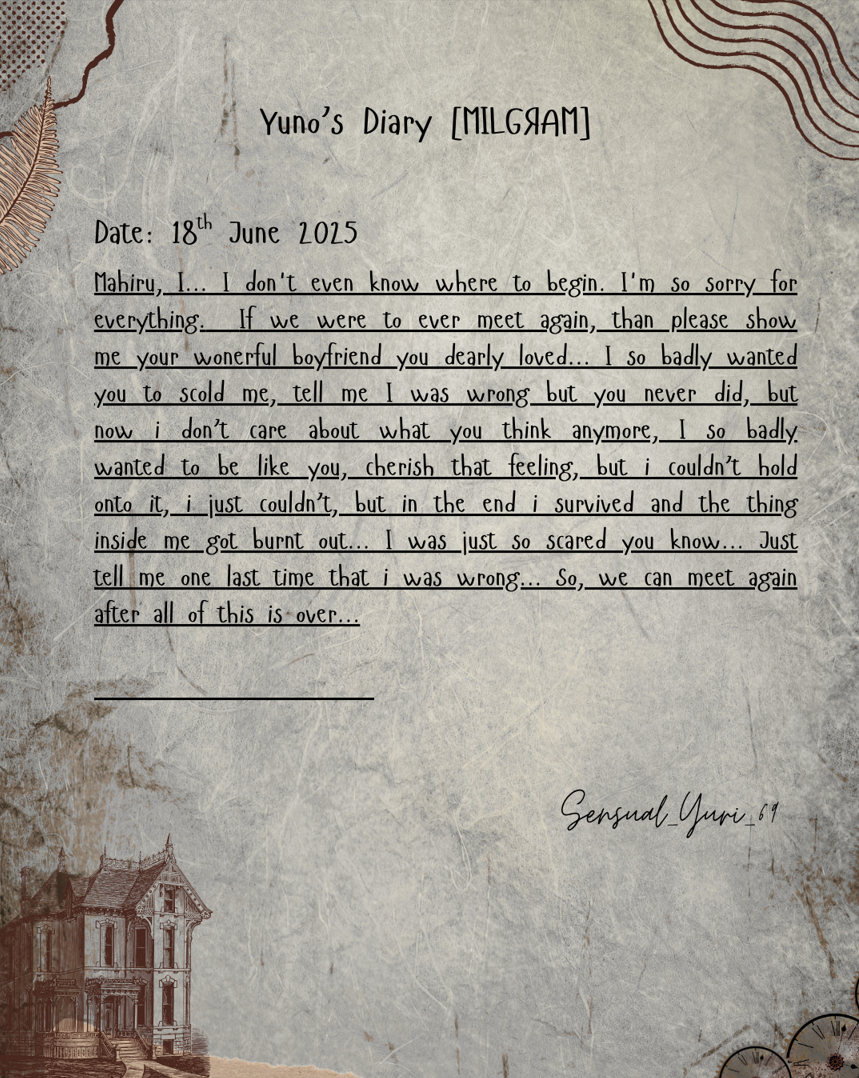 Yuno's Diary [MILGЯAM]
Date: 18th June 2025
Mahiru, I... I don't even know where to begin. I'm so sorry for
everything.  If we were to ever meet again, than please show
me your wonerful boyfriend you dearly loved... I so badly wanted
you to scold me, tell me I was wrong but you never did, but
now i don't care about what you think anymore, I so badly
wanted to be like you, cherish that feeling, but i couldn't hold
onto it, i just couldn't, but in the end i survived and the thing
inside me got burnt out... I was just so scared you know... Just
tell me one last time that i was wrong... So, we can meet again
after all of this is over...
Sensual_Yuri_69